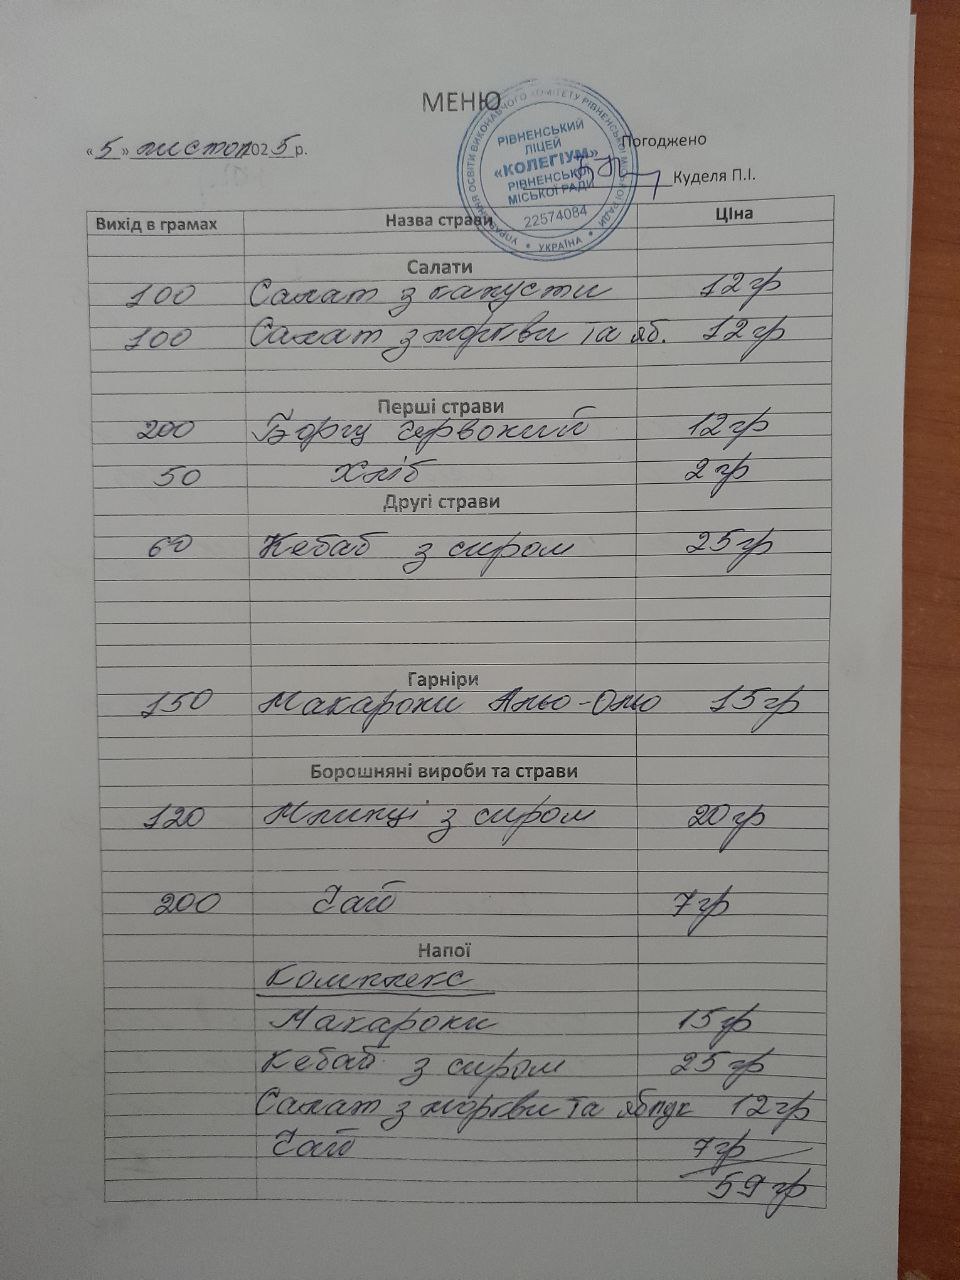 МЕНЮ
« 5 » листоп 2025 р.
Погоджено
Куделя П.І.
УПРАВЛІННЯ ОСВІТИ ВИКОНАВЧОГО КОМІТЕТУ РІВНЕНСЬКОЇ МІСЬКОЇ РАДИ • УКРАЇНА •
РІВНЕНСЬКИЙ
ЛІЦЕЙ
«КОЛЕГІУМ»
РІВНЕНСЬКОЇ
МІСЬКОЇ РАДИ
22574084
Вихід в грамах Назва страви Ціна
Салати
100 Салат з капусти 12гр
100 Салат з моркви та яб. 12гр
Перші страви
200 Борщ червоний 12гр
50 Хліб 2гр
Другі страви
60 Кебаб з сиром 25гр
Гарніри
150 Макарони Альо-Ольо 15гр
Борошняні вироби та страви
120 Млинці з сиром 20гр
200 Чай 7гр
Напої
Комплекс
Макарони 15гр
Кебаб з сиром 25гр
Салат з моркви та яблук 12гр
Чай 7гр
59гр